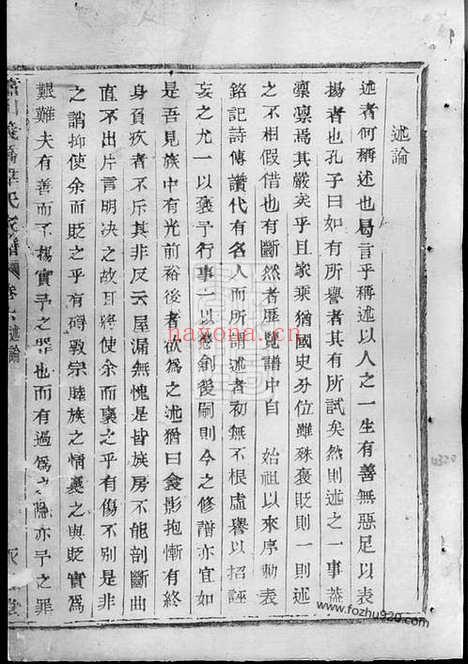 述論
述者何稱述也曷言乎稱述以人之一生有善無惡足以表
揚者也孔子曰如有所譽者其有所試矣然則述之一事蓋
凛凛焉其嚴矣乎且家乘猶國史分位雖殊褒貶則一則述
之不相假借也有斷然者歷覽譜中自 始祖以來序勳表
銘記詩傳讚代有名人而所謂述者初無不根虛譽以招誣
妄之尤一以褒予行事一以懲創後嗣則今之修譜亦宜如
是吾見族中有光前裕後者似為之述猶曰衾影抱慚有終
身負疚者不斥其非反云屋漏無愧是皆族房不能剖斷曲
直不出片言明決之故耳將使余而褒之乎有傷不別是非
之誚抑使余而貶之乎有碍敦宗睦族之情褒之與貶實為
艱難夫有善而不揚實予之罪也而有過為之隱亦予之罪
氏家譜 卷 述論
堂
naxona.cn
www.fozhu920.com